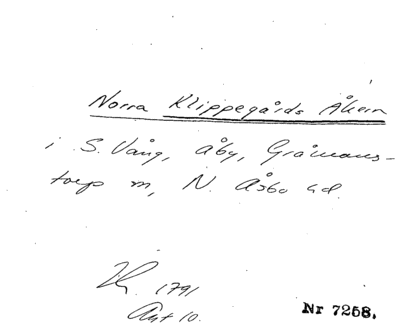 Norra Klippegårds Åkern
i S. Vång, Åby, Gråmans-
torp sn, N. Åsbo hd.
1791
Akt 10.
Nr 7258.